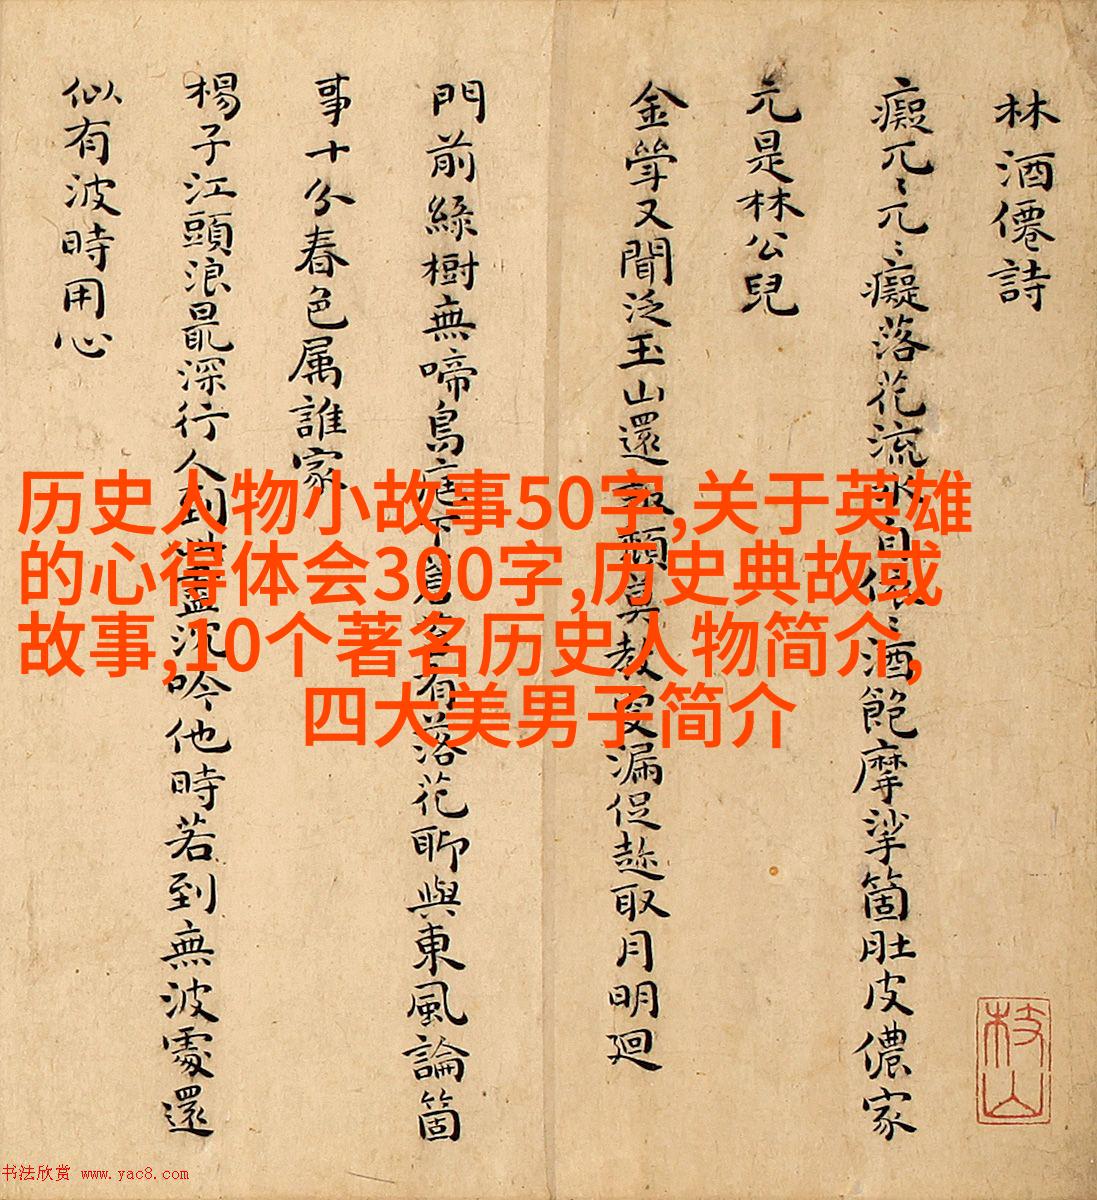 林酒僊詩
癡兀〻兀〻癡落花流水自偎〻酒飽摩挲箇肚皮儂家
元是林公兒
金斝又聞泛玉山還報頹莫教更漏促趂取月明廻
門前綠樹無啼鳥庭下蒼苔有落花聊與東風論箇
事十分春色属誰家
楊子江頭浪㝡深行人到此盡沈吟他時若到無波處還
似有波時用心
枝山
历史人物小故事50字,关于英雄
的心得体会300字,历史典故或
故事,10个著名历史人物简介,
四大美男子简介
书法欣赏 www.yac8.com